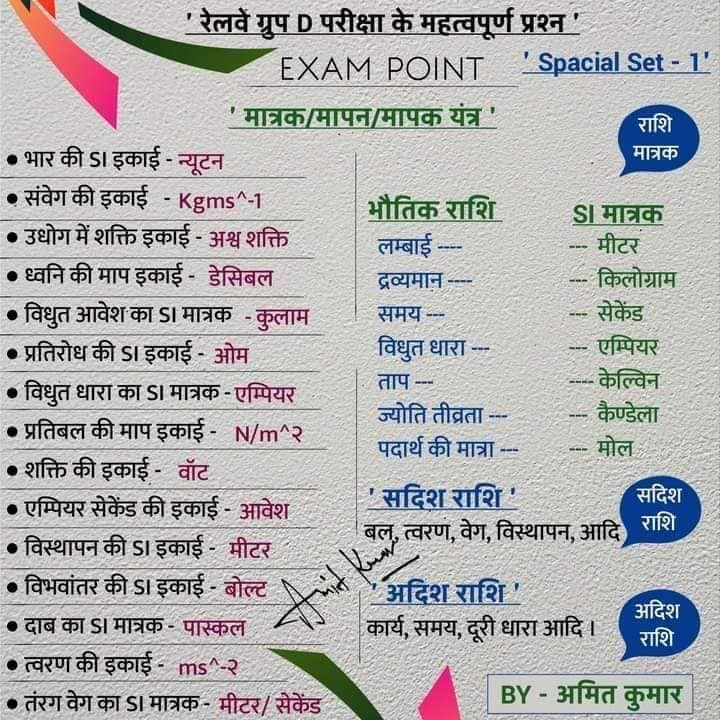 ' रेलवे ग्रुप D परीक्षा के महत्वपूर्ण प्रश्न '
EXAM POINT
' Spacial Set - 1'
' मात्रक/मापन/मापक यंत्र '
राशि
मात्रक
• भार की SI इकाई - न्यूटन
• संवेग की इकाई - Kgms^-1
• उधोग में शक्ति इकाई - अश्व शक्ति
• ध्वनि की माप इकाई - डेसिबल
• विधुत आवेश का SI मात्रक - कुलाम
• प्रतिरोध की SI इकाई - ओम
• विधुत धारा का SI मात्रक - एम्पियर
• प्रतिबल की माप इकाई - N/m^२
• शक्ति की इकाई - वॉट
• एम्पियर सेकेंड की इकाई - आवेश
• विस्थापन की SI इकाई - मीटर
• विभवांतर की SI इकाई - बोल्ट
• दाब का SI मात्रक - पास्कल
• त्वरण की इकाई - ms^-२
• तंरग वेग का SI मात्रक - मीटर/ सेकेंड
भौतिक राशि SI मात्रक
लम्बाई ---- --- मीटर
द्रव्यमान ---- --- किलोग्राम
समय --- --- सेकेंड
विधुत धारा --- --- एम्पियर
ताप --- ---- केल्विन
ज्योति तीव्रता --- --- कैण्डेला
पदार्थ की मात्रा --- --- मोल
' सदिश राशि '
सदिश
राशि
बल, त्वरण, वेग, विस्थापन, आदि
Amit Kumar
' अदिश राशि '
अदिश
राशि
कार्य, समय, दूरी धारा आदि ।
BY - अमित कुमार